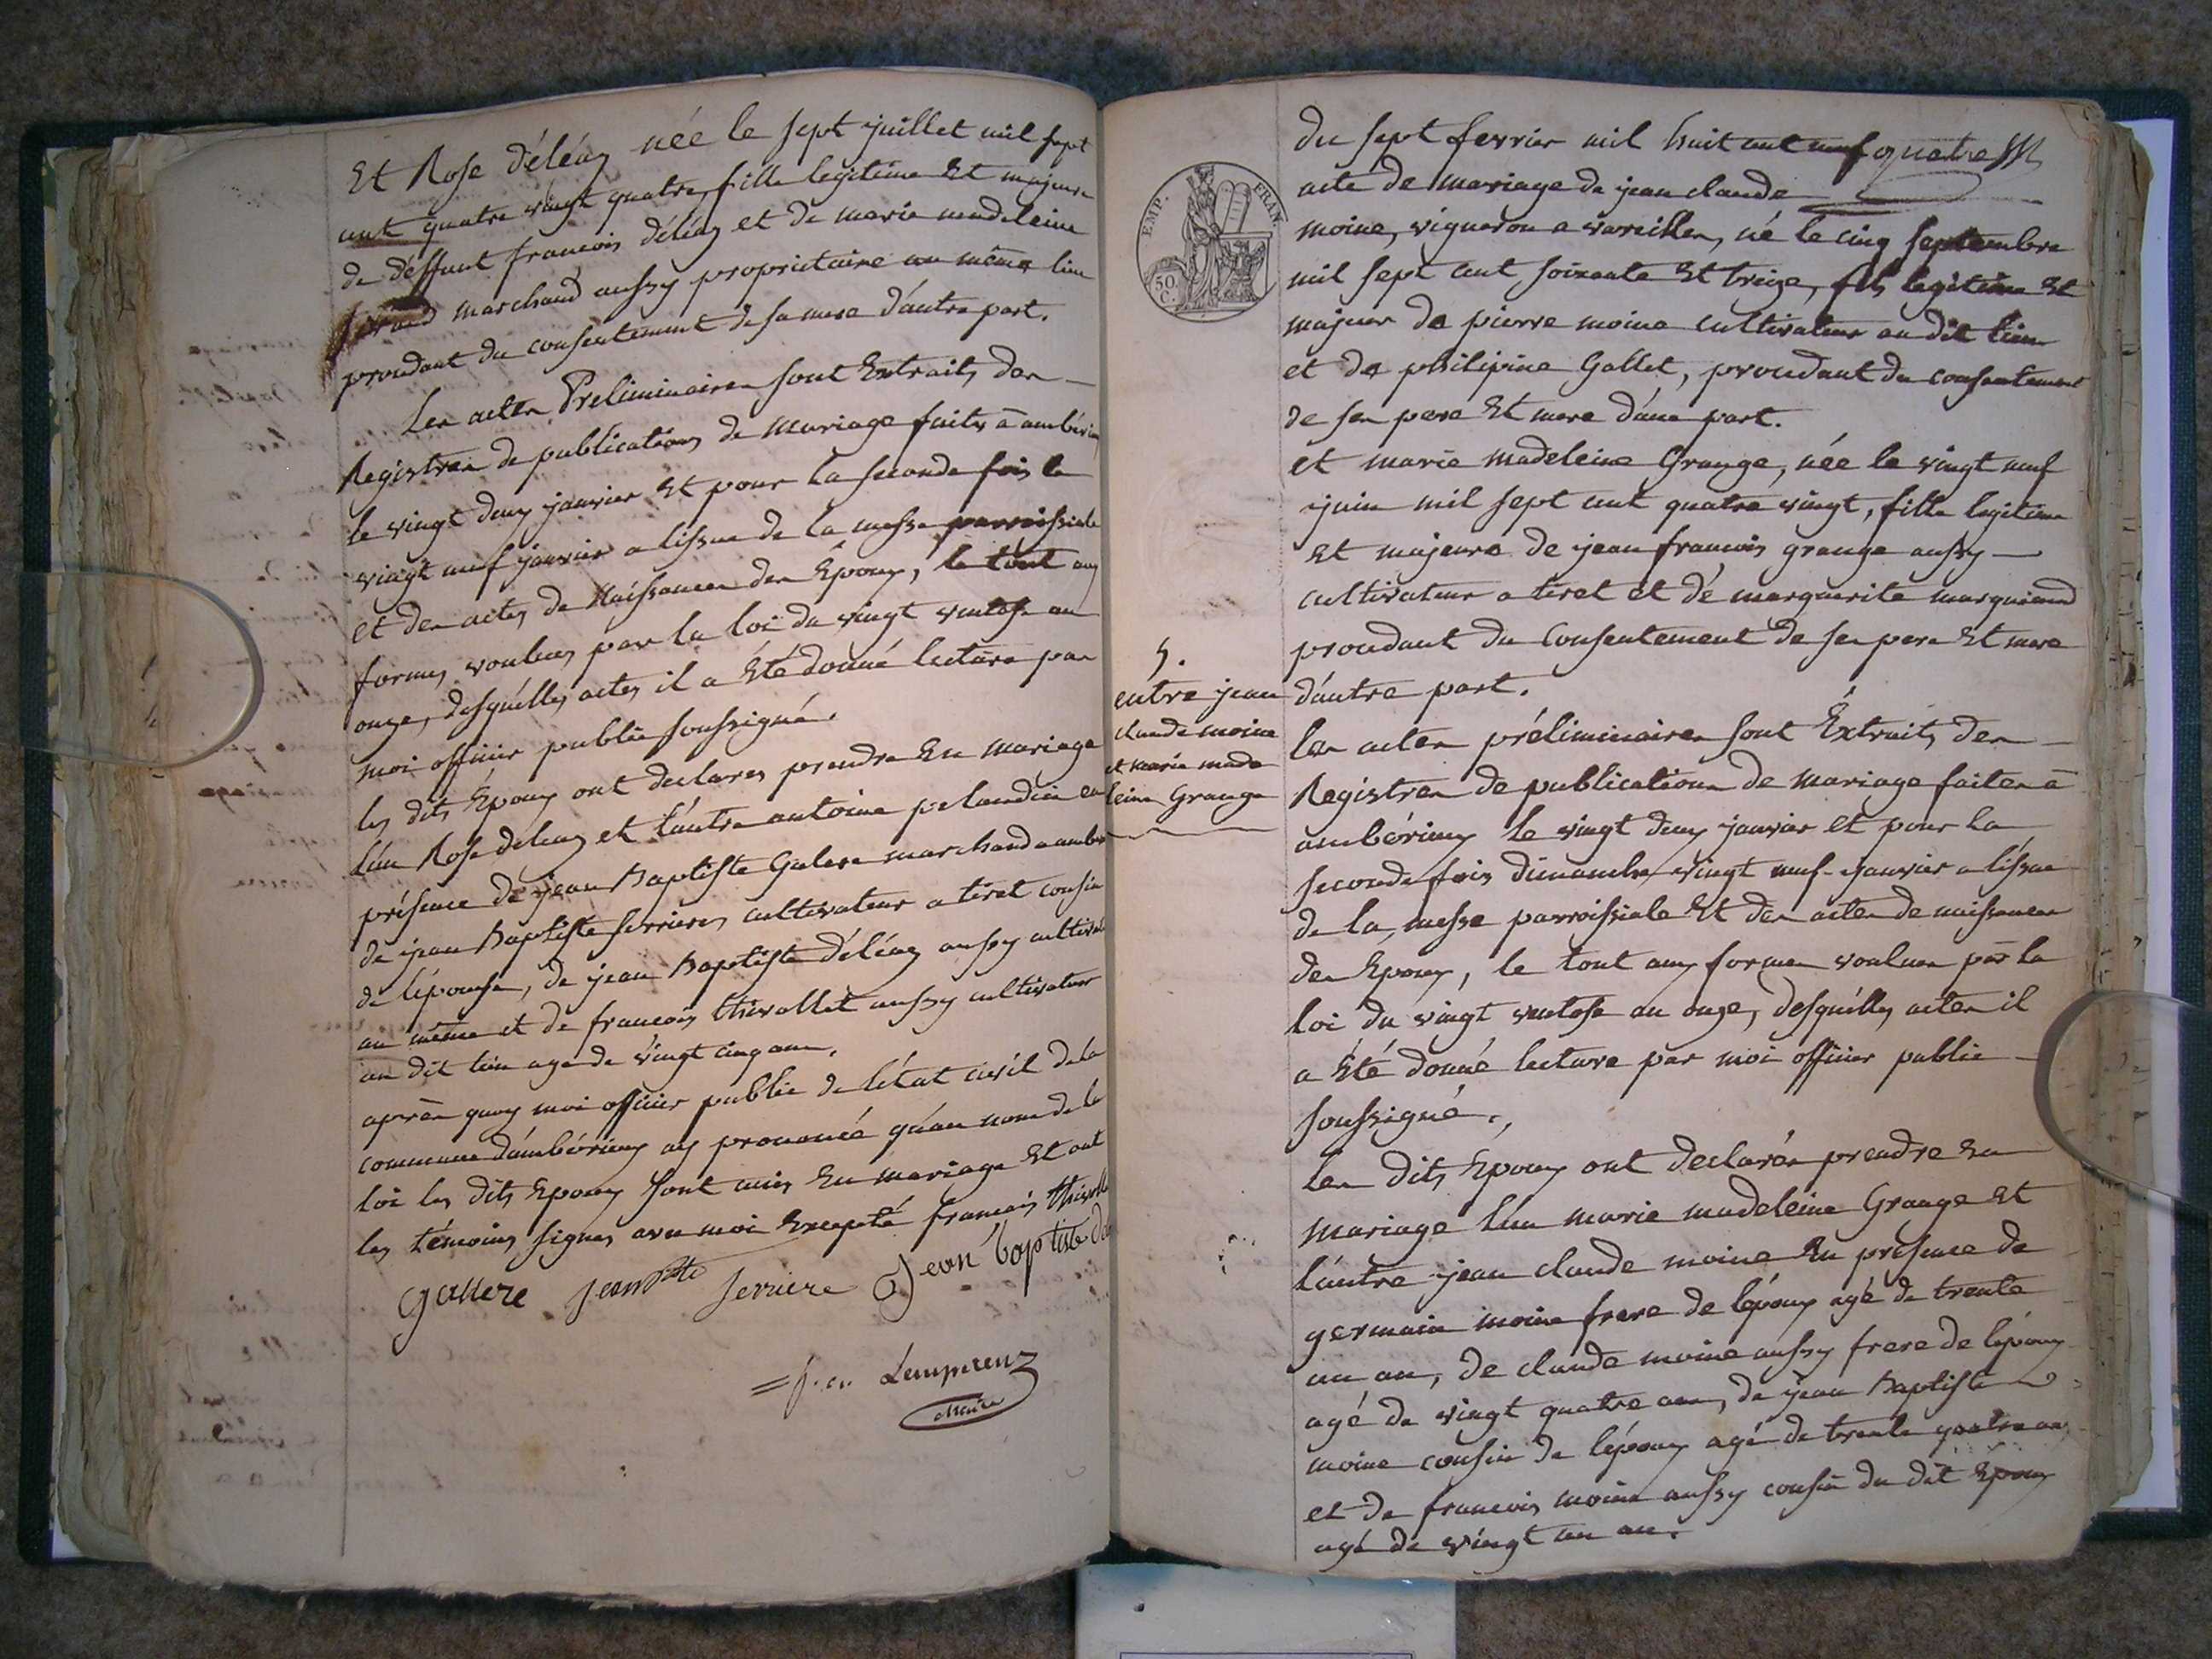 Et Rose déléaz née le sept juillet mil sept
cent quatre vingt quatre, fille legitime Et majeure
de déffunt francois déléaz et de marie madeleine
marchand aussy proprietaire au même lieu
procedant du consentement de sa mere d'autre part.
Les actes Preliminaires sont Extraits des
Registres de publications de mariage faites à ambérieu
le vingt deux janvier Et pour la seconde fois le
vingt neuf janvier a lissue de la messe parroissiale
et des actes de Naissances des Epoux, le tout aux
formes voulues par la loi du vingt ventose an
onze, desquelles actes il a Eté donné lecture par
moi officier public soussigné.
les dits Epoux ont declarés prendre En mariage
l'un Rose deleaz et l'autre antoine pelaudin en
présence de jean Baptiste Galere marchand a
de jean Baptiste ferriere cultivateur a tiret cousin
de l'épouse, de jean Baptiste déléaz aussy
au même et de francois thivollet aussy cultivateur
au dit lieu agé de vingt cinq ans.
après quoy moi officier public de l'état civil de la
commune d'ambérieux ay prononcé qu'au nom de la
loi les dits Epoux sont unis En mariage Et ont
les témoins signés avec moi Excepté francois
Gallere jean Bte ferriere Jean baptiste
Maire
EMP. FRAN.
50 C.
du sept fevrier mil huit cent neuf quatre
acte de mariage de jean claude
moine, vigneron a vareilles, né le cinq septembre
mil sept cent soixante Et treize, fils legitime Et
majeur de pierre moine cultivateur au dit lieu
et de philipine Gallet, procedant du consentement
de ses pere Et mere d'une part.
et marie madeleine Grange, née le vingt neuf
juin mil sept cent quatre vingt, fille legitime
Et majeure de jean francois grange aussy
cultivateur a tiret et de marguerite
procedant du Consentement de ses pere Et mere
d'autre part.
5.
entre jean
claude moine
et marie made
leine Grange
les actes préliminaires sont Extraits des
Registres de publications de mariage faites à
ambérieux le vingt deux janvier et pour la
seconde fois dimanche vingt neuf janvier a lissue
de la messe parroissiale Et des actes de naissances
des Epoux, le tout aux formes voulues par la
loi du vingt ventose an onze, desquelles actes il
a Eté donné lecture par moi officier public
soussigné.
les dits Epoux ont declarés prendre En
mariage l'un marie madeleine Grange Et
l'autre jean claude moine En presence de
germain moine frere de l'époux agé de trente
un an, de claude moine aussy frere de l'époux
agé de vingt quatre ans, de jean Baptiste
moine cousin de l'époux agé de trente quatre ans
et de francois moine aussy cousin du dit Epoux
agé de vingt un an.